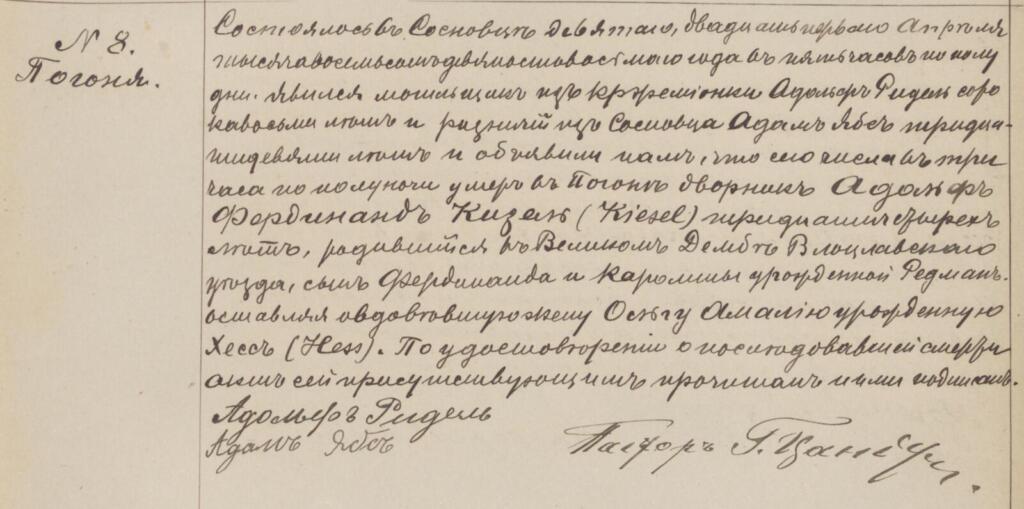 N 8.
Погоня.
Состоялось въ Сосновцѣ девятаго, двадцать перваго Апрѣля
тысяча восемьсотъ девяносто восьмаго года въ пять часовъ по полу
дни. явился могильщикъ изъ Адольфъ Ридель соро
ка восьми лѣтъ и рѣзничій изъ Сосновца Адамъ Ябсъ тридца-
ти девяти лѣтъ и объявили намъ, что сего числа въ три
часа по полуночи умеръ въ Погонѣ дворникъ Адольфъ
Фердинандъ Кизель (Kiesel) тридцати четырехъ
лѣтъ, родившійся въ Великомъ Дембѣ Влоцлавскаго
уѣзда, сынъ Фердинанда и Каролины урожденной Редманъ.
оставляя овдовѣвшую жену Ольгу Амалію урожденную
Хессъ (Hess). По удостовѣреніи о послѣдовавшей смерти
актъ сей присутствующимъ прочитанъ и ими подписанъ.
Адольфъ Ридель
Адамъ Ябсъ
Пасторъ Г.